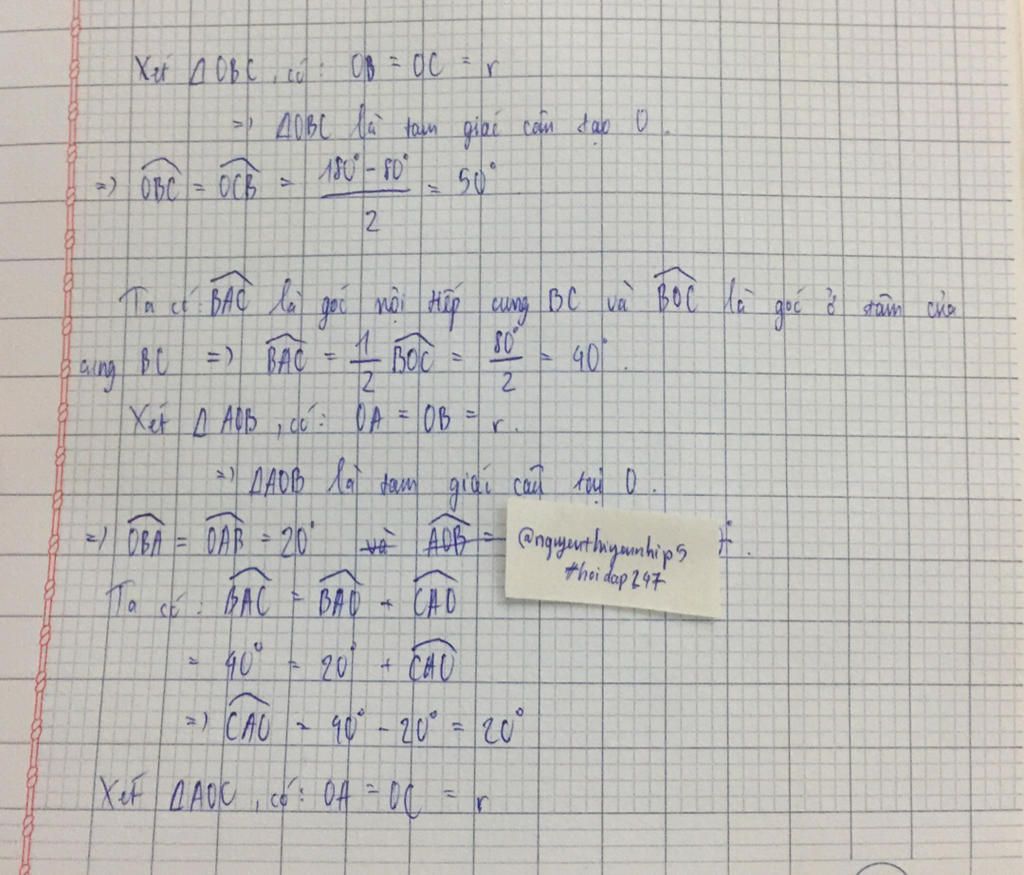 Xét ΔOBC, có: OB = OC = r
=> ΔOBC là tam giác cân tạo O.
=> OBC = OCB = 180° - 80° / 2 = 50°
Ta có: BAC là góc nội tiếp cung BC và BOC là góc ở tâm của
cung BC => BAC = 1/2 BOC = 80°/2 = 40°.
Xét ΔAOB, có: OA = OB = r.
=> ΔAOB là tam giác cân tại O.
=> OBA = OAB = 20° và AOB =
@nguyenthiyennhip5
#hoidap247
Ta có: BAC = BAO + CAO
= 40° = 20° + CAO
=> CAO = 40° - 20° = 20°
Xét ΔAOC, có: OA = OC = r